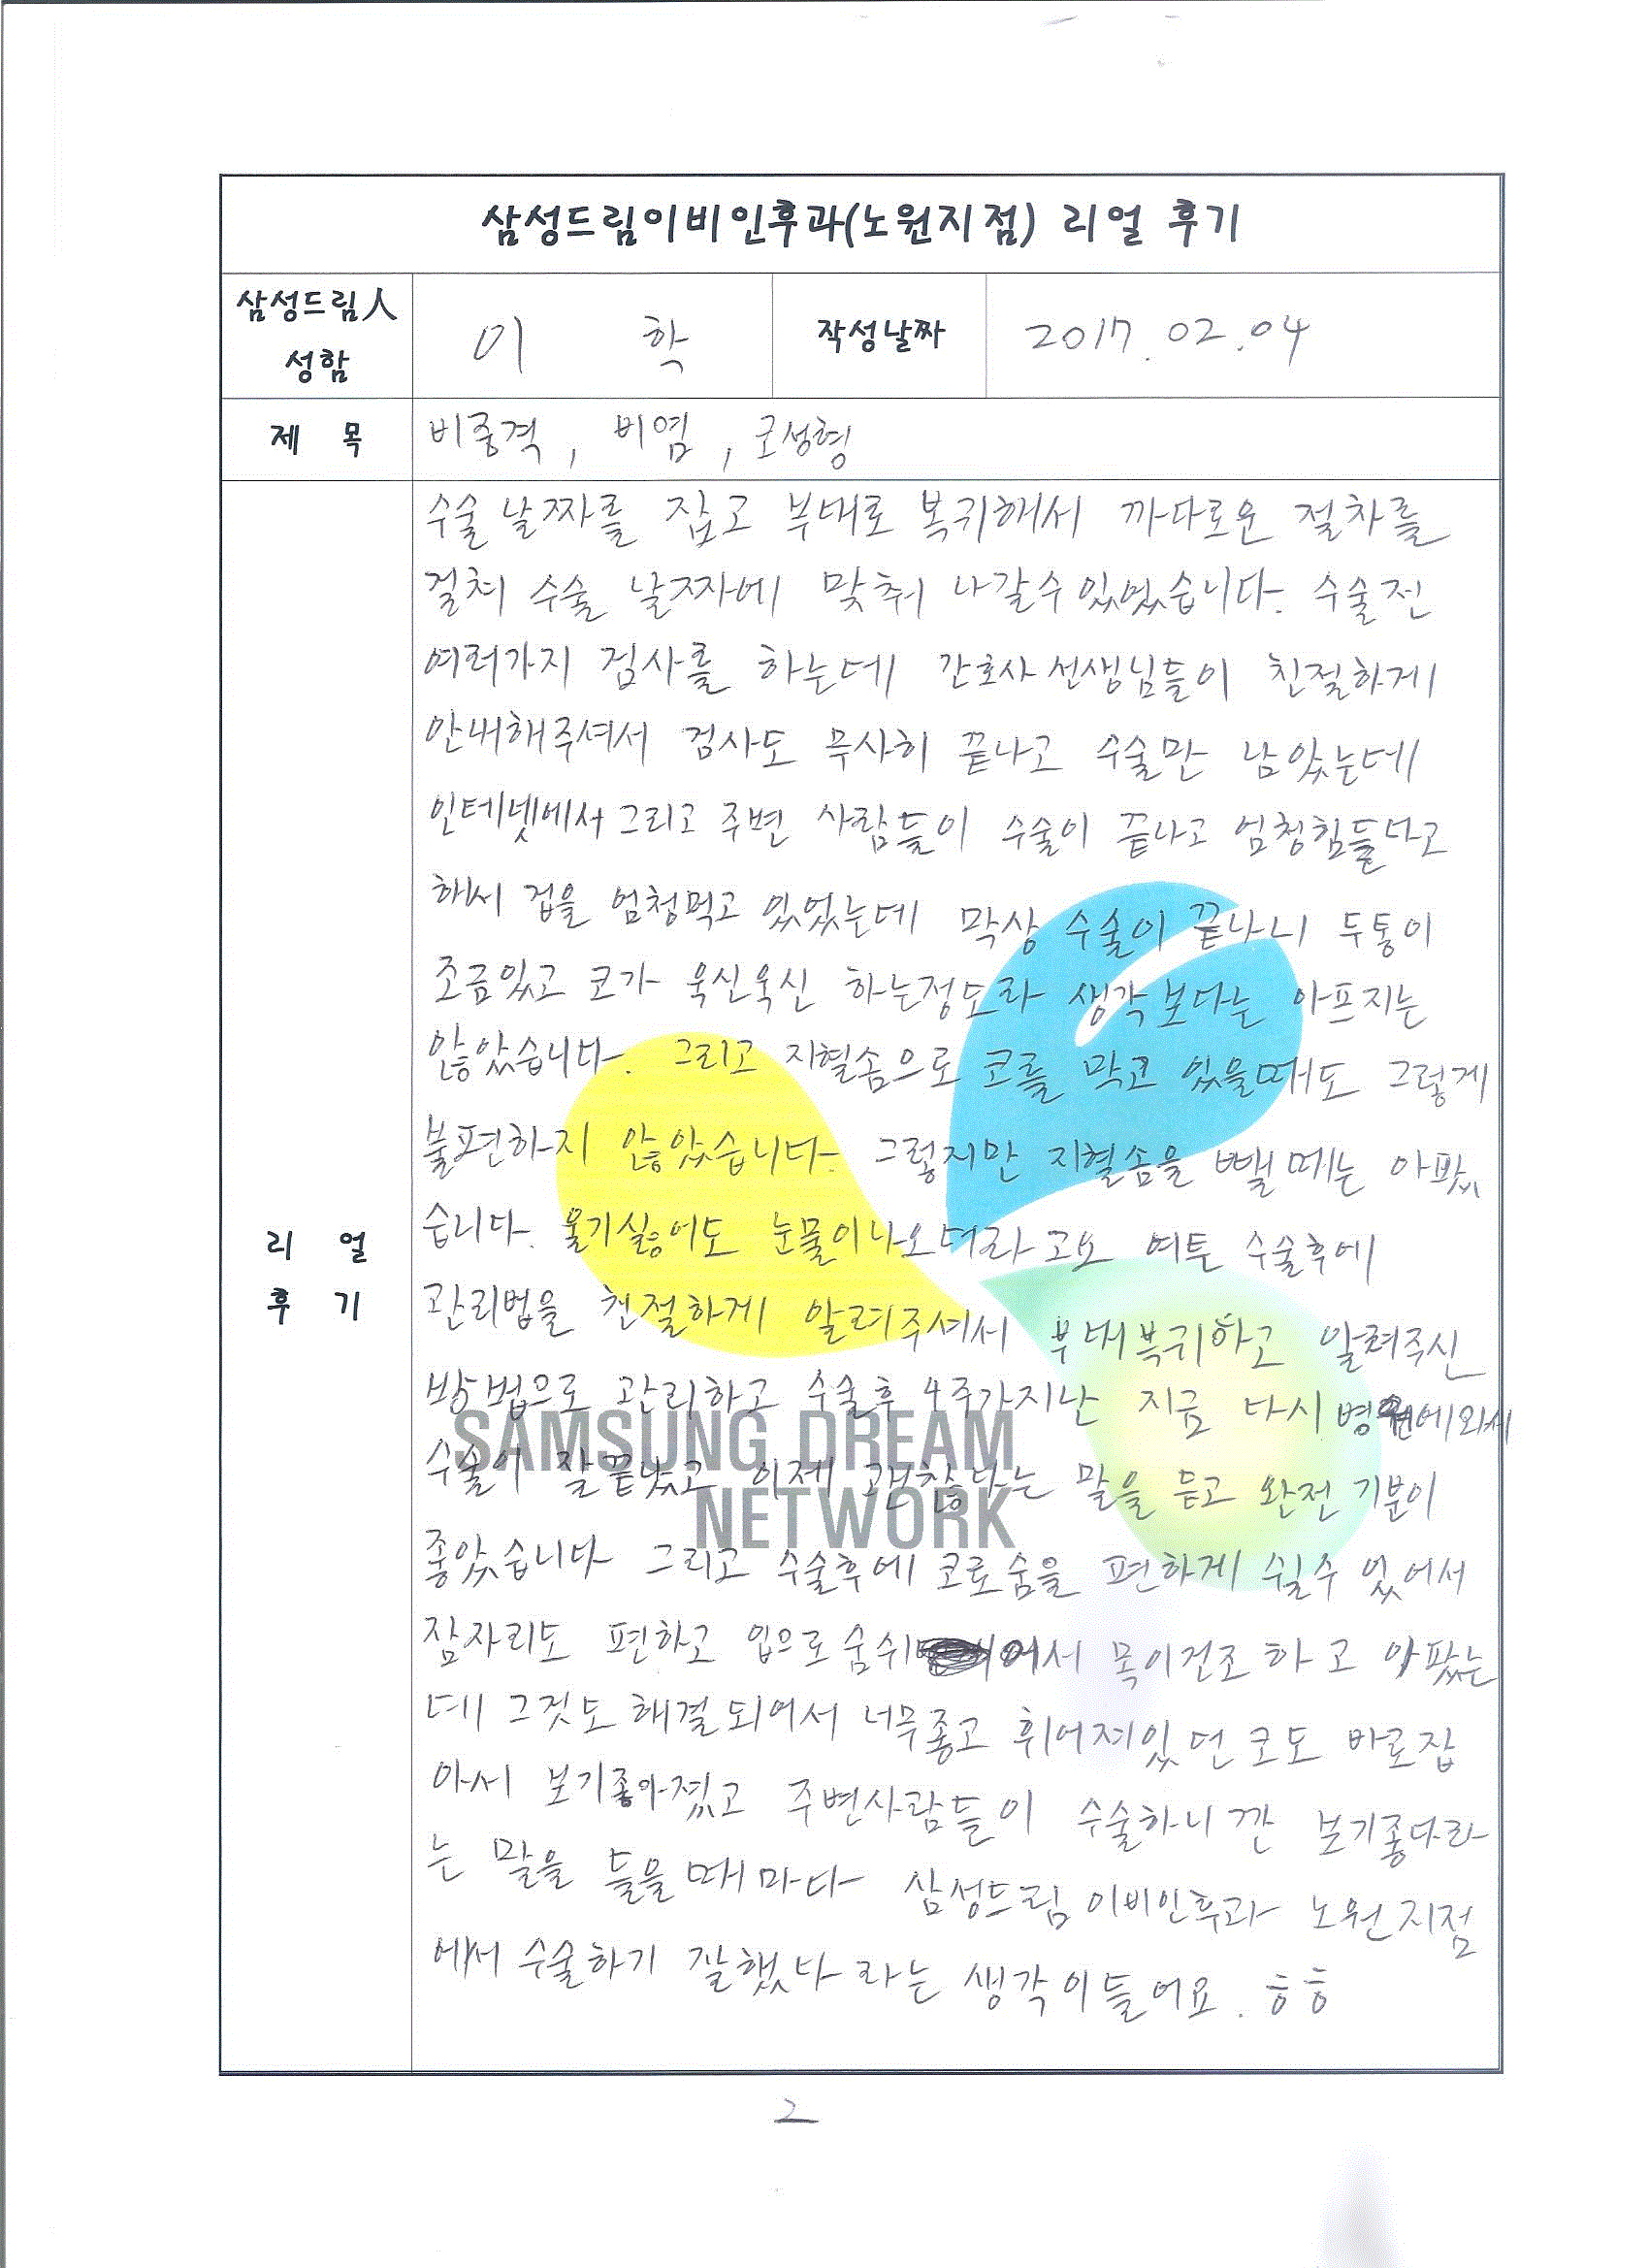 삼성드림이비인후과(노원지점) 리얼 후기
삼성드림人
성함
이 학
작성날짜
2017.02.04
제 목
비중격, 비염, 코성형
리 얼
후 기
수술 날짜를 잡고 부대로 복귀해서 까다로운 절차를
걸쳐 수술 날짜에 맞춰 나갈수있었습니다. 수술전
여러가지 검사를 하는데 간호사선생님들이 친절하게
안내해주셔서 검사도 무사히 끝나고 수술만 남았는데
인테넷에서 그리고 주변 사람들이 수술이 끝나고 엄청힘들다고
해서 겁을 엄청먹고 있었는데 막상 수술이 끝나니 두통이
조금있고 코가 욱신욱신 하는정도라 생각보다는 아프지는
않았습니다. 그리고 지혈솜으로 코를 막고 있을때도 그렇게
불편하지 않았습니다. 그렇지만 지혈솜을 뺄때는 아팠
습니다. 울기싫어도 눈물이나오더라고요 여튼 수술후에
관리법을 친절하게 알려주셔서 부대복귀하고 알려주신
방법으로 관리하고 수술후 4주가지난 지금 다시 병원에와서
수술이 잘끝났고 이제 괜찮다는 말을 듣고 완전 기분이
좋았습니다 그리고 수술후에 코로숨을 편하게 쉴수 있어서
잠자리도 편하고 입으로숨쉬어서 목이건조하고 아팠는
데 그것도 해결되어서 너무좋고 휘어져있던코도 바로잡
아서 보기좋아졌고 주변사람들이 수술하니깐 보기좋다라
는 말을 들을때마다 삼성드림이비인후과 노원지점
에서 수술하기 잘했다 라는 생각이들어요. ㅎㅎ
SAMSUNG DREAM
NETWORK
2